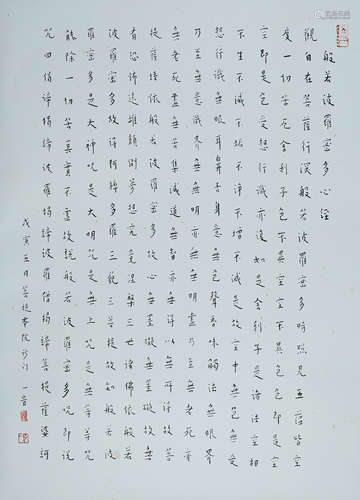 般若波羅蜜多心經
觀自在菩薩行深般若波羅蜜多時照見五蘊皆空
度一切苦厄舍利子色不異空空不異色色即是空
空即是色受想行識亦復如是舍利子是諸法空相
不生不滅不垢不淨不增不減是故空中無色無受
想行識無眼耳鼻舌身意無色聲香味觸法無眼界
乃至無意識界無無明亦無無明盡乃至無老死亦
無老死盡無苦集滅道無智亦無得以無所得故菩
提薩埵依般若波羅蜜多故心無罣礙無罣礙故無
有恐怖遠離顛倒夢想究竟涅槃三世諸佛依般若
波羅蜜多故得阿耨多羅三藐三菩提故知般若波
羅蜜多是大神咒是大明咒是無上咒是無等等咒
能除一切苦真實不虛故說般若波羅蜜多咒即說
咒曰揭諦揭諦波羅揭諦波羅僧揭諦菩提薩婆訶
戊寅五月菩提本院 一音